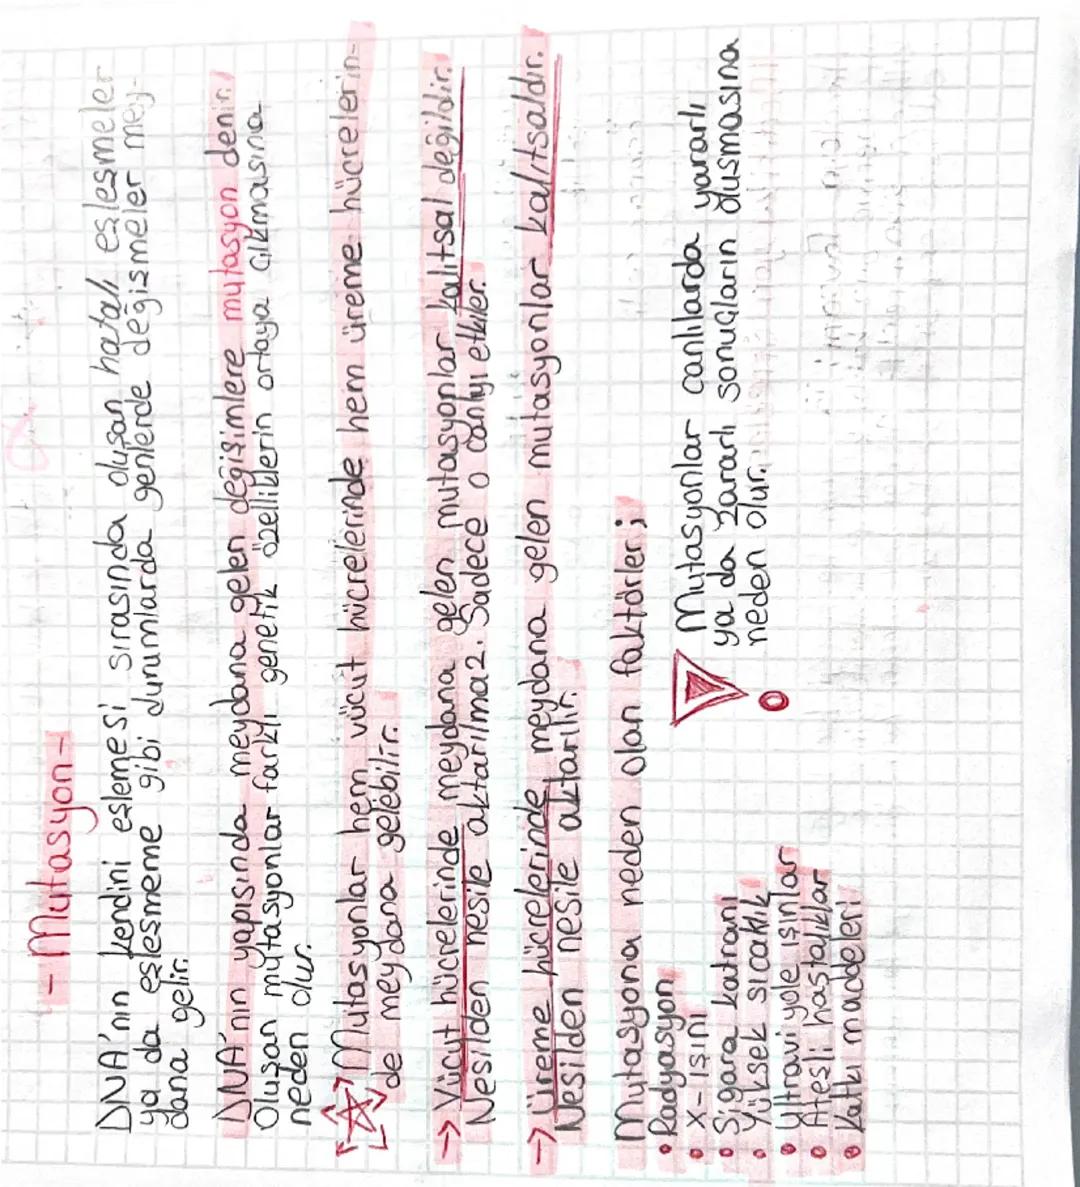 - Mutasyon -
DNA'nın kendini eşlemesi sırasında oluşan hatalı eşleşmeler
ya da eşleşmeme gibi durumlarda genlerde değişmeler mey-
dana gelir.
DNA'nın yapısında meydana gelen değişimlere mutasyon denir.
Oluşan mutasyonlar farklı genetik özelliklerin ortaya çıkmasına
neden olur.
Mutasyonlar hem vücut hücrelerinde hem üreme hücrelerin-
de meydana gelebilir.
→ Vücut hücrelerinde meydana gelen mutasyonlar kalıtsal değildir.
Nesilden nesile aktarılmaz. Sadece o canlıyı etkiler.
→ Üreme hücrelerinde meydana gelen mutasyonlar kalıtsaldır.
Nesilden nesile aktarılır.
Mutasyona neden olan faktörler;
• Radyasyon
• X-ışını
• Sigara katranı
• Yüksek sıcaklık
• Ultraviyole ışınlar
• Ateşli hastalıklar
• Katkı maddeleri
Mutasyonlar canlılarda yararlı
ya da zararlı sonuçların oluşmasına
neden olur.